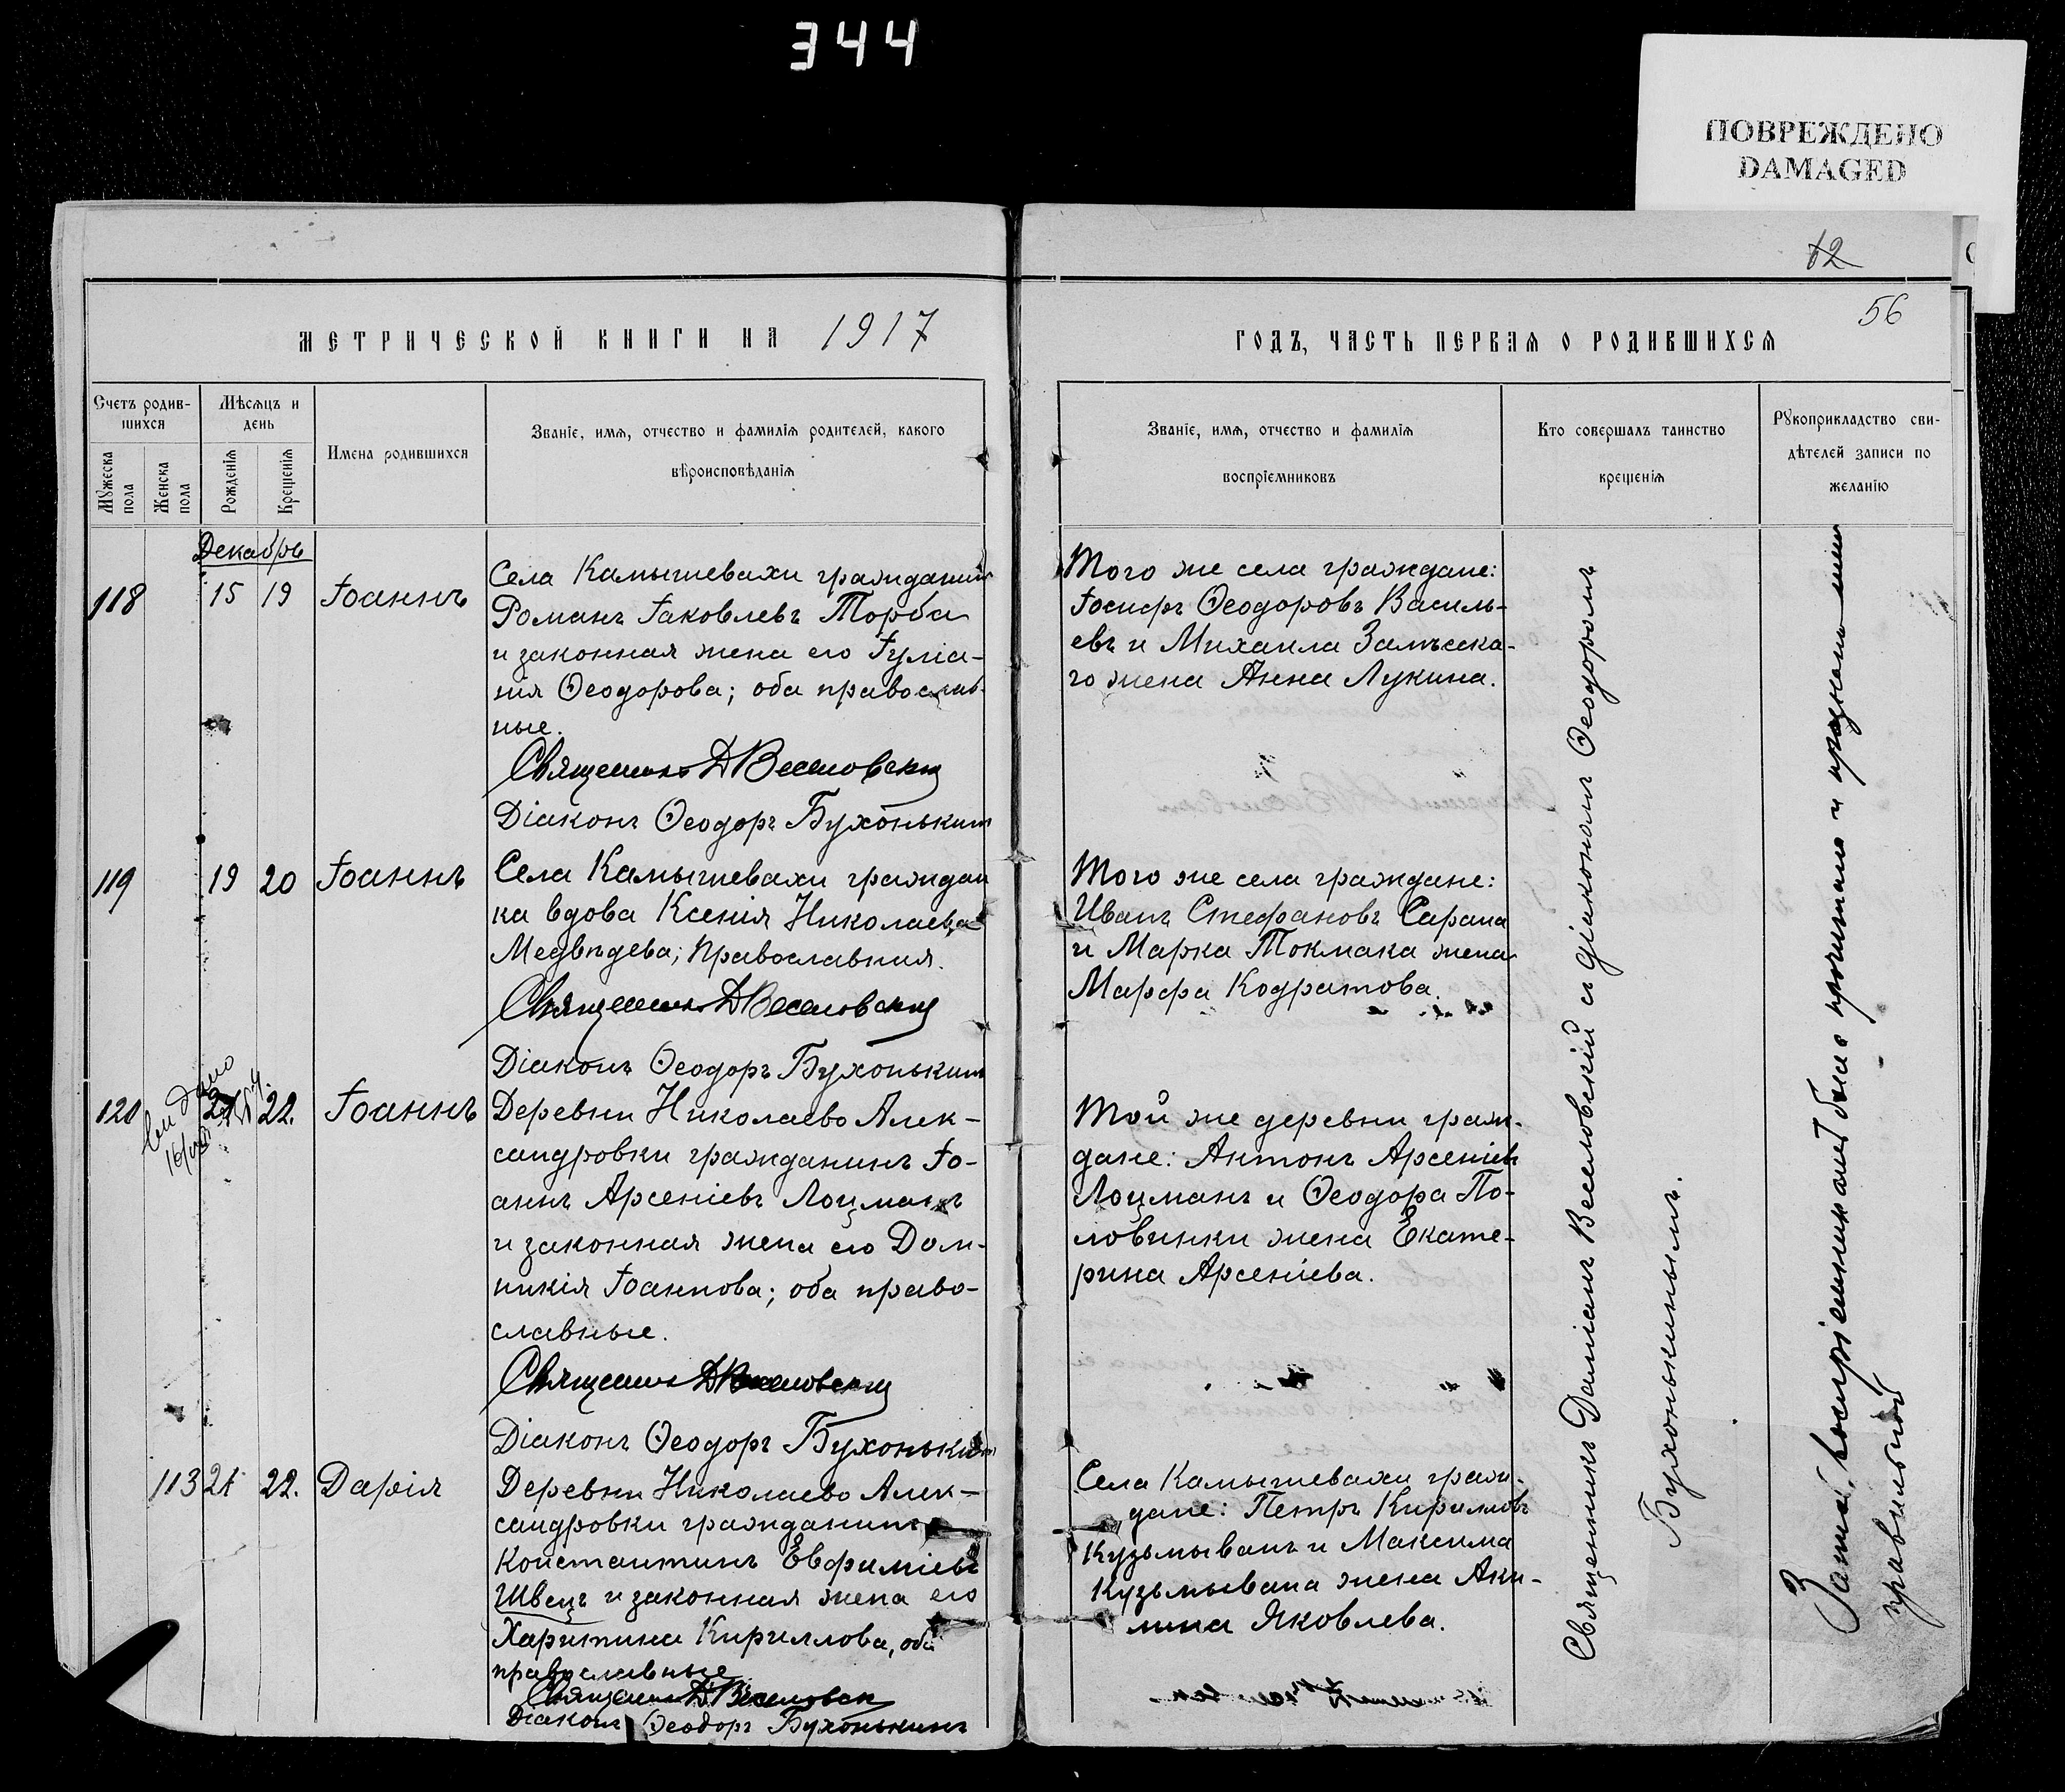 344
ПОВРЕЖДЕНО
DAMAGED
12
56
МЕТРИЧЕСКОЙ КНИГИ НА 1917
ГОДЪ, ЧАСТЬ ПЕРВАЯ О РОДИВШИХСЯ
Счетъ родив-
шихся
Мужеска
пола
Женска
пола
Мѣсяцъ и
день
Рожденїя
Крещенїя
Имена родившихся
Званїе, имя, отчество и фамилїя родителей, какого
вѣроисповѣданїя
Званїе, имя, отчество и фамилїя
воспрїемниковъ
Кто совершалъ таинство
крещенїя
Рукоприкладство сви-
дѣтелей записи по
желанїю
Декабрь
118
15 19 Іоаннъ
Села Камышевахи гражданинъ
Романъ Іаковлевъ Торба
и законная жена его Іуліа-
нія Ѳеодорова; оба православ-
ные.
Священникъ Д Веселовскій
Діаконъ Ѳеодоръ Бухонькинъ
Того же села граждане:
Іосифъ Ѳеодоровъ Василь-
евъ и Михаила Замѣска-
го жена Анна Лукина.
119
19 20 Іоаннъ
Села Камышевахи граждан
ка вдова Ксенія Николаева
Медвѣдева; православная.
Священникъ Д Веселовскій
Діаконъ Ѳеодоръ Бухонькинъ
Того же села граждане:
Иванъ Стефановъ Сарана
и Марка Токмака жена
Марфа Кодратова.
120
22. Іоаннъ
Деревни Николаево Алек-
сандровки гражданинъ Іо-
аннъ Арсеніевъ Лоцманъ
и законная жена его Дом-
никія Іоаннова; оба право-
славные.
Священникъ Д Веселовскій
Діаконъ Ѳеодоръ Бухонькинъ
Той же деревни граж-
дане: Антонъ Арсеніевъ
Лоцманъ и Ѳеодора По-
ловинки жена Екате-
рина Арсеніева.
113 21 22. Дарія
Деревни Николаево Алек-
сандровки гражданинъ
Константинъ Евфиміевъ
Швецъ и законная жена его
Харитина Кириллова, оба
православные
Священникъ Д Веселовск
Діаконъ Ѳеодоръ Бухонькинъ
Села Камышевахи граж-
дане: Петръ Кирилловъ
Кузьмыванъ и Максима
Кузьмывана жена Аки-
лина Яковлева.
Священникъ Даніилъ Веселовскій съ діакономъ Ѳеодоромъ
Бухонькинымъ.
правильной